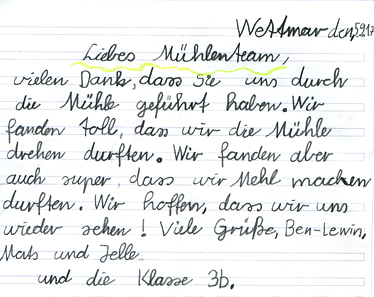 Wettmar den, 5.9.17
Liebes Mühlenteam,
vielen Dank, dass Sie uns durch
die Mühle geführt haben. Wir
fanden toll, dass wir die Mühle
drehen durften. Wir fanden aber
auch super, dass wir Mehl machen
durften. Wir hoffen, dass wir uns
wieder sehen! Viele Grüße, Ben-Lewin,
Mats und Jelle
und die Klasse 3b.